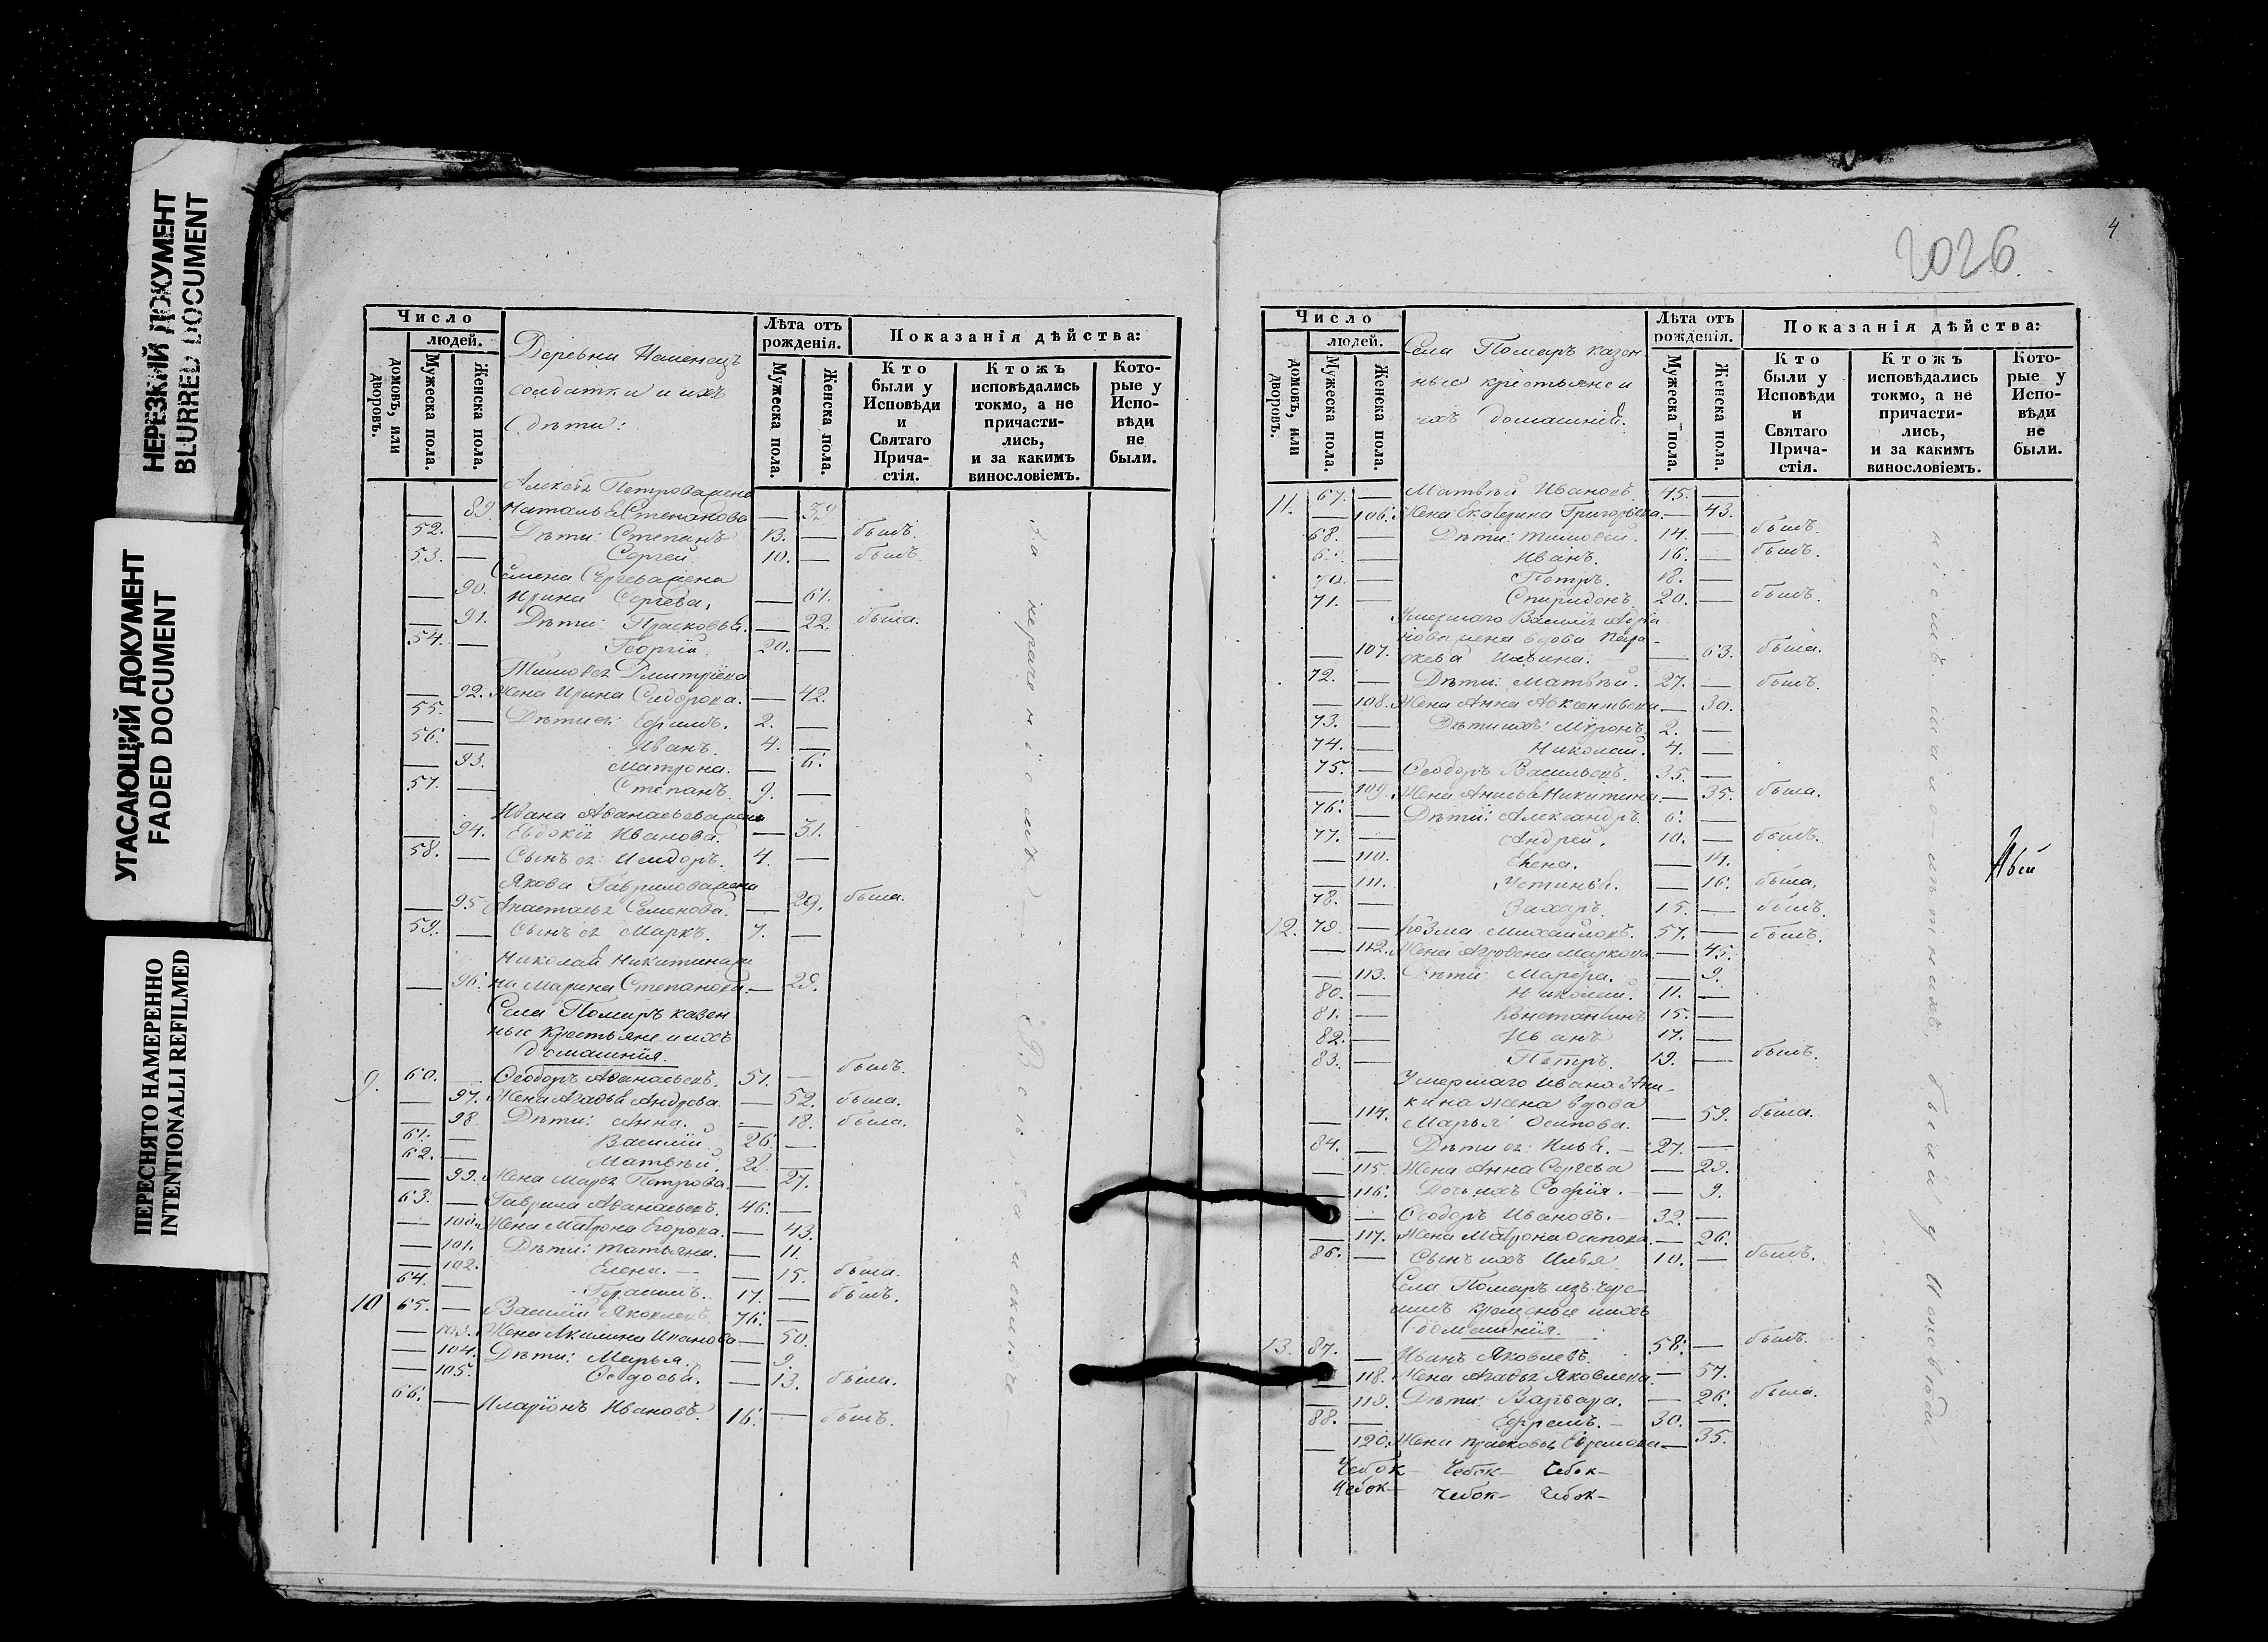 НЕРЕЗКИЙ ДОКУМЕНТ
BLURRED DOCUMENT
УГАСАЮЩИЙ ДОКУМЕНТ
FADED DOCUMENT
ПЕРЕСНЯТО НАМЕРЕННО
INTENTIONALLI REFILMED
Число
людей.
домовъ, или дворовъ.
Мужеска пола.
Женска пола.
Деревни
солдатки и ихъ
дѣти:
Лѣта отъ рожденія.
Мужеска пола.
Женска пола.
Показанія дѣйства:
Кто были у Исповѣди и Святаго Прича-стія.
Ктожъ исповѣдались токмо, а не причасти-лись, и за какимъ винословіемъ.
Кото-рые у Испо-вѣди не были.
Алексѣя Петрова жена
89. Наталья Степанова — 39.
52. — Дѣти: Степанъ 13. — былъ.
53. — Сергей 10. — былъ
Семена Сергева жена
— 90. Ирина Сергева, — 61.
— 91. Дѣти: Прасковья. — 22. была.
54. — Георгій. 20. —
Тимофея Дмитріева
— 92. Жена Ирина Сидорова. — 42.
55. — Дѣти ея: Ефимъ. 2. —
56. — Иванъ. 4. —
— 93. Матрона. — 6.
57. — Степанъ. 9. —
Ивана Аѳанасьева жена
— 94. Евдокія Иванова. — 31.
58. — Сынъ ея: Исидоръ. 4. —
Якова Гаврилова жена
— 95 Анастасья Семенова. — 29. была.
59. — Сынъ ея Маркъ. 7. —
Николая Никитина же
— 96. на Марина Степанова. — 29.
Села Помаръ казен
ные крестьяне и ихъ
домашнія.
9. 60. — Ѳеодоръ Аѳанасьевъ. 51. — былъ.
— 97. Жена Агафья Андреева. — 52. была.
— 98. Дѣти: Анна. — 18. была.
61. — Василій 26. —
62. — Матвѣй. 22. —
— 99. Жена Марья Петрова. — 27.
63. — Гаврила Аѳанасьевъ. 46. —
— 100. Жена Матрона Егорова. — 43.
— 101. Дѣти: Татьяна. — 11.
— 102. Елена. — — 15. была.
64. — Герасимъ. 17. — былъ.
10 65. — Василій Яковлевъ. 76. —
— 103. Жена Акилина Иванова — 50.
— 104. Дѣти: Марья. — 9.
— 105. Ѳедосья. — 13. была.
66. — Иларіонъ Ивановъ. 16. — былъ.
2026
4
Число
людей.
домовъ, или дворовъ.
Мужеска пола.
Женска пола.
Села Помаръ казен
ные крестьяне и
ихъ домашнія.
Лѣта отъ рожденія.
Мужеска пола.
Женска пола.
Показанія дѣйства:
Кто были у Исповѣди и Святаго Прича-стія.
Ктожъ исповѣдались токмо, а не причасти-лись, и за какимъ винословіемъ.
Кото-рые у Испо-вѣди не были.
11. 67. — Матвѣй Ивановъ. 45. —
— 106. Жена Екатерина Григорьева. — 43.
68. — Дѣти: Тимофей. 14. — былъ.
— Иванъ. 16. — былъ.
70. — Петръ. 18. —
71. — Спиридонъ. 20. — былъ.
Умершаго Василія
жена вдова Пара-
— 107. скева — 63. была.
72. — Дѣти: Матвѣй. 27. — былъ.
— 108. Жена Анна Авксентьева — 30.
73. — Дѣти ихъ: Миронъ. 2. —
74. — Николай. 4. —
75. — Ѳеодоръ Васильевъ. 35. —
— 109. Жена Анисья Никитина. — 35. была.
76. — Дѣти: Александръ 6. —
77. — Андрей. 10. — былъ.
— 110. Елена. — 14.
— 111. Устинья. — 16. была.
78. — Захаръ. 15. — былъ.
12. 79. — Козма Михайловъ. 57. — былъ.
— 112. Жена Маркова — 45.
— 113. Дѣти: — 9.
80. — Николай. 11. —
81. — Константинъ 15. —
82. — Иванъ 17. —
83. — Петръ. 19. — былъ.
Умершаго Ивана Ани-
кина жена вдова
— 114. Марья Осипова. — 59. была.
84. — Дѣти ея: Илья. — 27. —
— 115. Жена Анна Сергева — 29.
— 116. Дочь ихъ Софія. — — 9.
— Ѳеодоръ Ивановъ. — 32. —
— 117. Жена Матрона Осипова — 26.
86. — Сынъ ихъ Илья 10. — былъ.
Села Помаръ изъ чере-
мисъ крещеные и ихъ
домашнія.
13. 87. — Иванъ Яковлевъ. 58. — былъ.
118. Жена Агафья Яковлева. — 57.
— 119. Дѣти: Варвара. — 26. была.
88. — Ефремъ. — 30. —
— 120. Жена Прасковья Ефремова — 35.
Чебок— Чебок— Чебок—
Чебок— Чебок— Чебок—